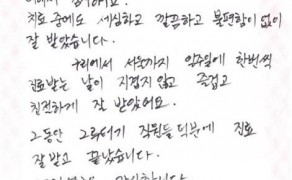 치료 중에도 세심하고 깔끔하고 불편함이 없이
잘 받았습니다.
에서 서울까지 일주일에 한번씩
진료받는 날이 지겹지 않고 즐겁고
친절하게 잘 받았어요.
그동안 그루터기 직원들 덕분에 진료
잘 받고 끝났습니다.
감사합니다